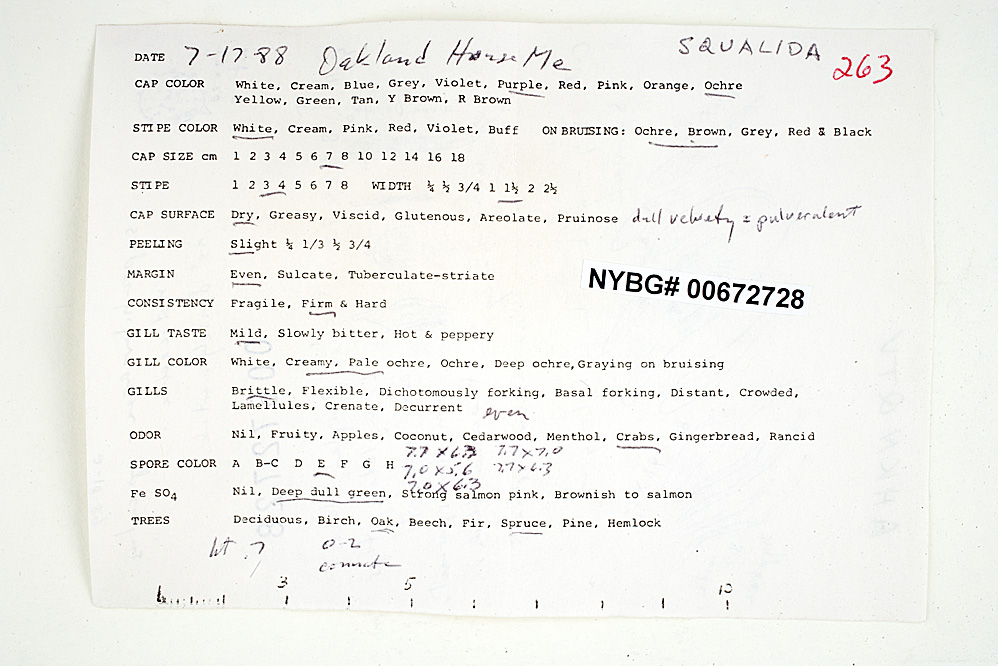 DATE 7-17-88 Oakland House Me SQUALIDA 263
CAP COLOR White, Cream, Blue, Grey, Violet, Purple, Red, Pink, Orange, Ochre
Yellow, Green, Tan, Y Brown, R Brown
STIPE COLOR White, Cream, Pink, Red, Violet, Buff ON BRUISING: Ochre, Brown, Grey, Red & Black
CAP SIZE cm 1 2 3 4 5 6 7 8 10 12 14 16 18
STIPE 1 2 3 4 5 6 7 8 WIDTH ¼ ½ 3/4 1 1½ 2 2½
CAP SURFACE Dry, Greasy, Viscid, Glutenous, Areolate, Pruinose dull velvety ± pulveralent
PEELING Slight ¼ 1/3 ½ 3/4
MARGIN Even, Sulcate, Tuberculate-striate
NYBG# 00672728
CONSISTENCY Fragile, Firm & Hard
GILL TASTE Mild, Slowly bitter, Hot & peppery
GILL COLOR White, Creamy, Pale ochre, Ochre, Deep ochre, Graying on bruising
GILLS Brittle, Flexible, Dichotomously forking, Basal forking, Distant, Crowded,
Lamellules, Crenate, Decurrent even
ODOR Nil, Fruity, Apples, Coconut, Cedarwood, Menthol, Crabs, Gingerbread, Rancid
7.7 x 6.3 7.7 x 7.0
SPORE COLOR A B-C D E F G H 7.0 x 5.6 7.7 x 6.3
7.0 x 6.3
Fe SO4 Nil, Deep dull green, Strong salmon pink, Brownish to salmon
TREES Deciduous, Birch, Oak, Beech, Fir, Spruce, Pine, Hemlock
ht .7 0-2
connate
3 5 10